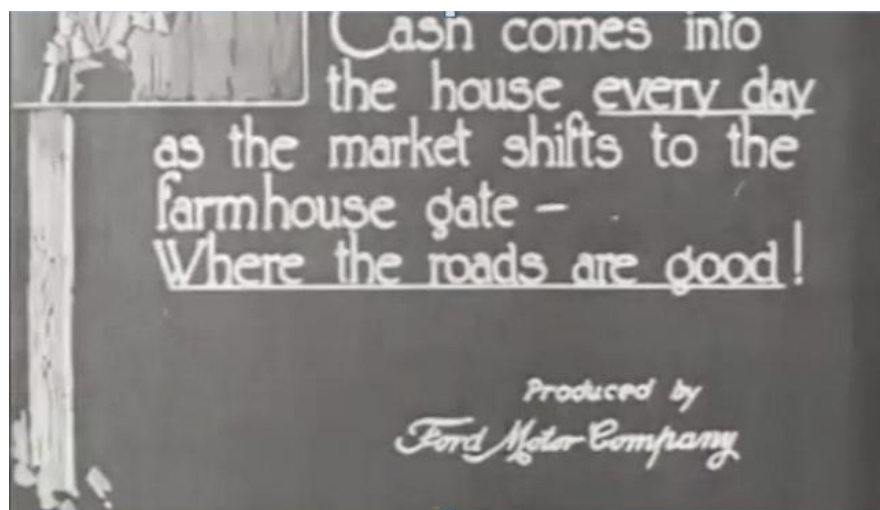 Cash comes into
the house every day
as the market shifts to the
farmhouse gate –
Where the roads are good!
Produced by
Ford Motor Company